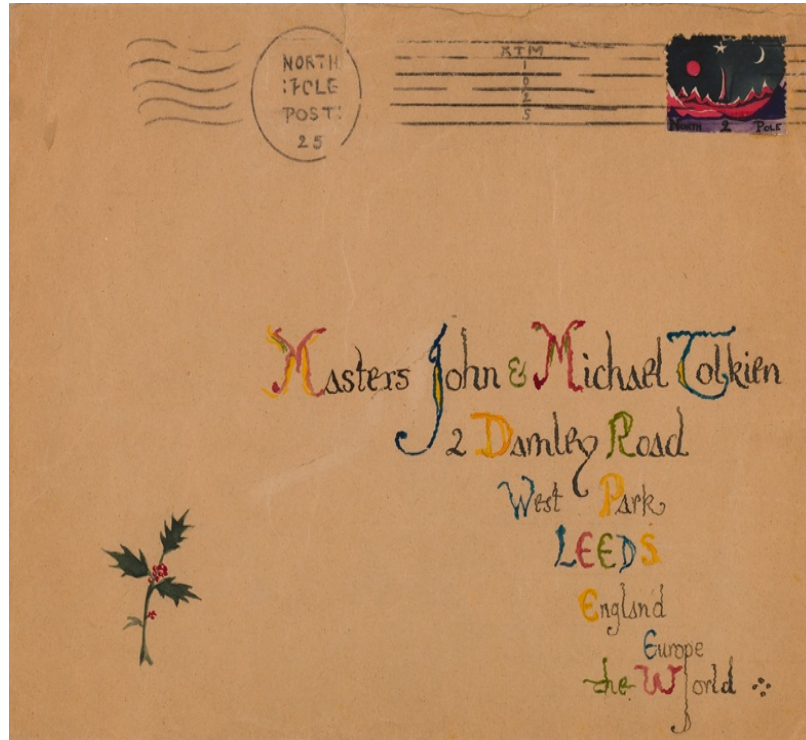 NORTH
POLE
POST:
25
1925
NORTH 2 POLE
Masters John & Michael Tolkien
2 Darnley Road
West Park
LEEDS
England
Europe
the World